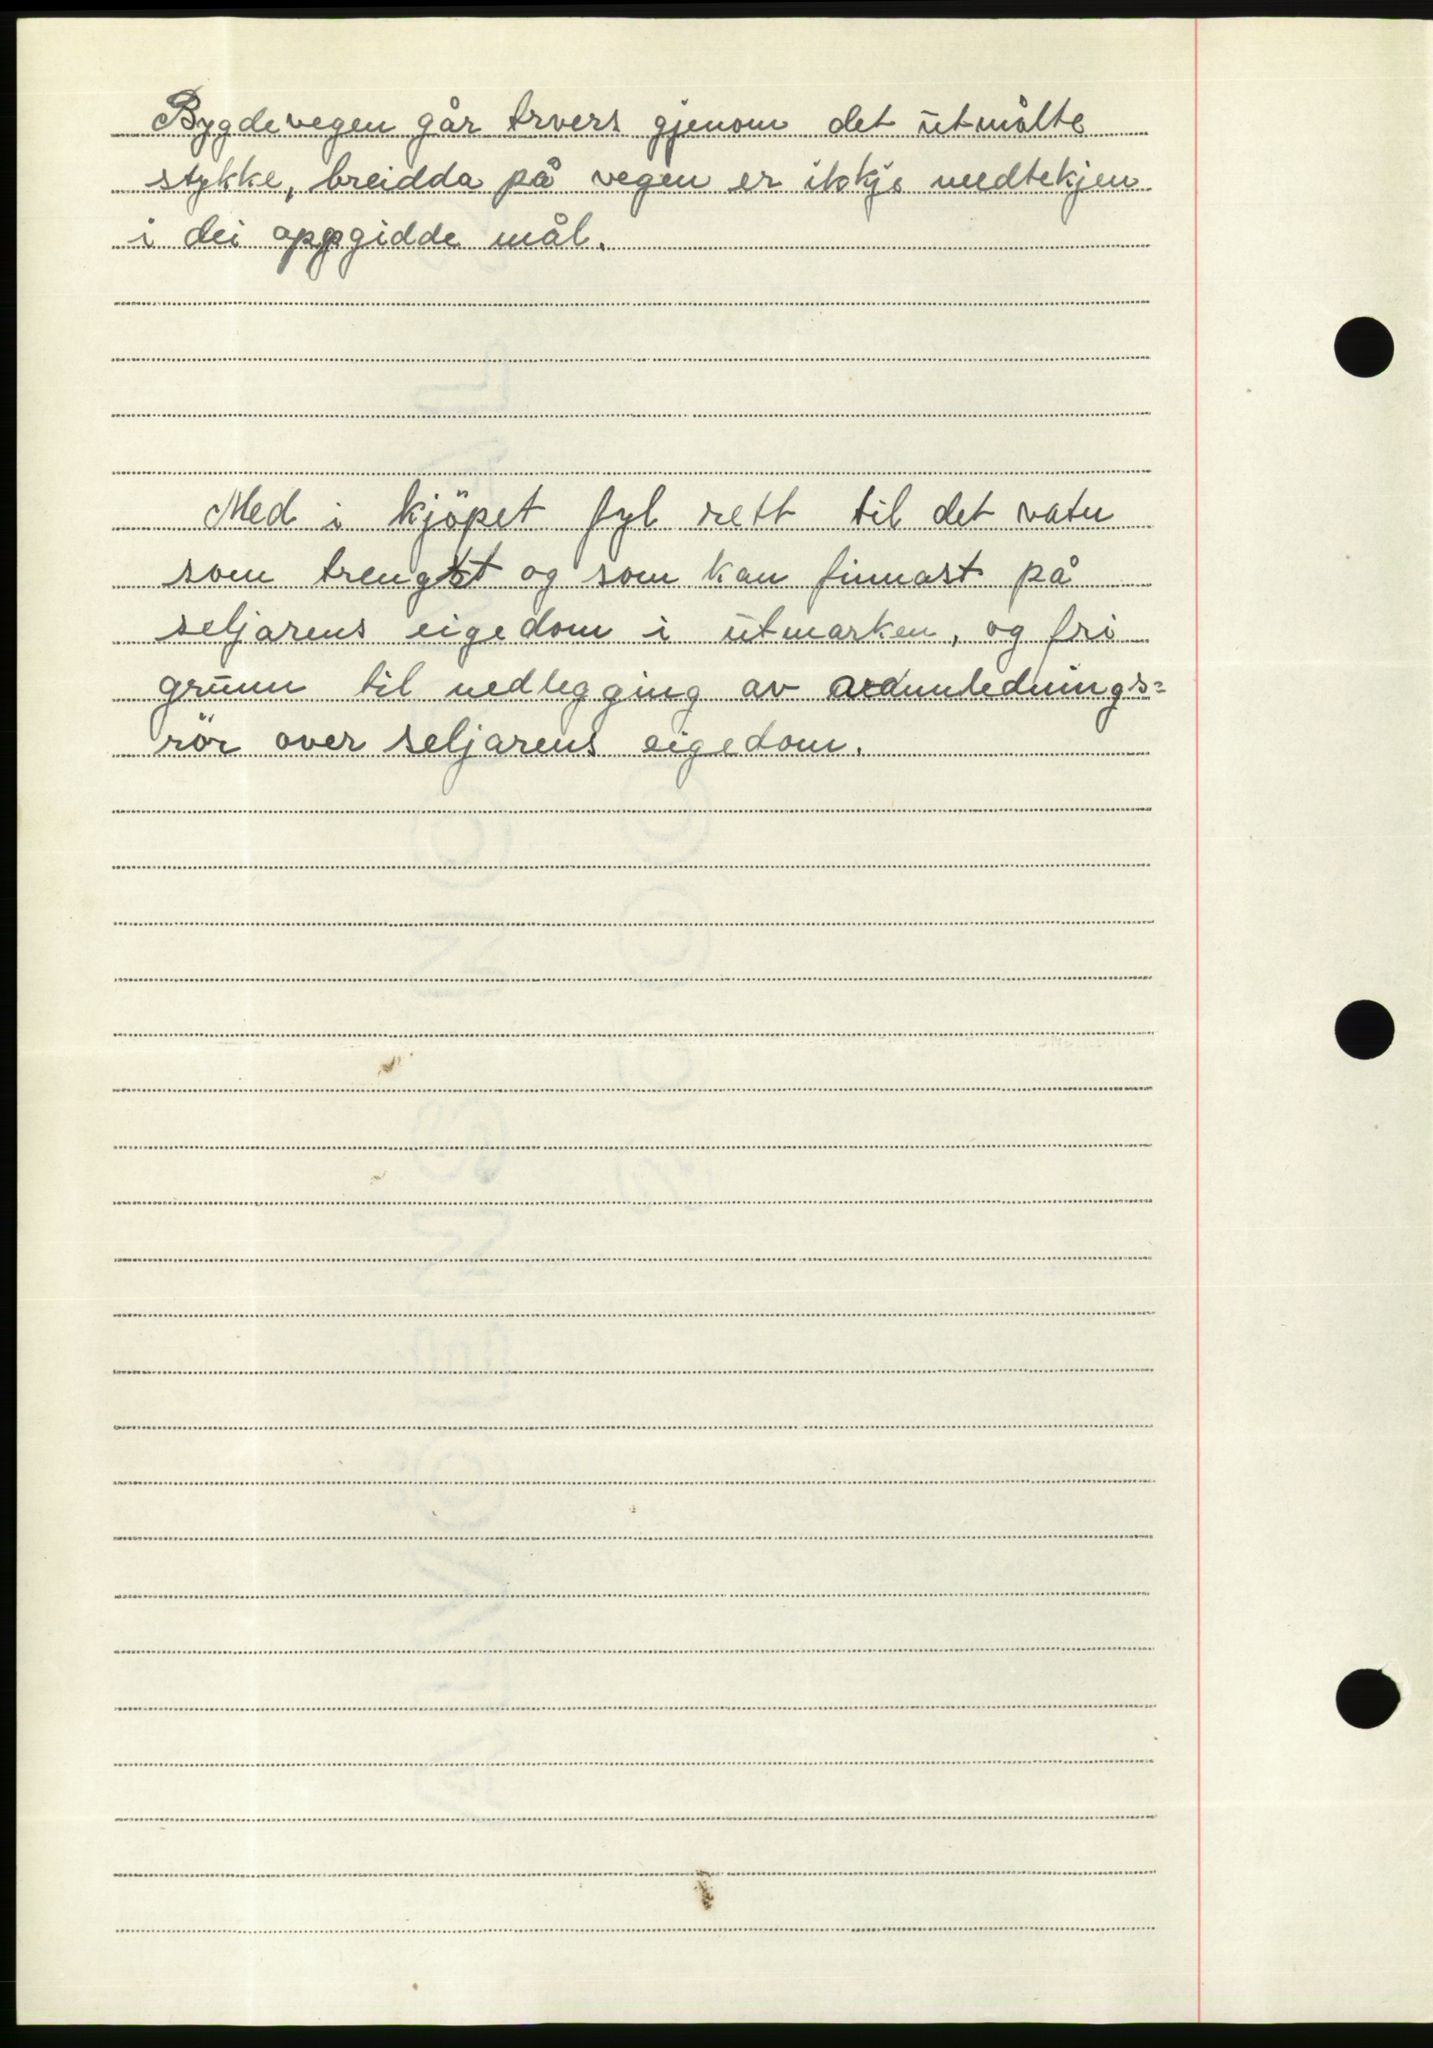 Bygdevegen går trvers gjenom det utmålte
stykke, breidda på vegen er ikkje medtekjen
i dei oppgidde mål.
Med i kjöpet fyl rett til det vatn
som trengst og som kan finnast på
seljarens eigedom i utmarken, og fri
grunn til nedlegging av vannlednings=
rör over seljarens eigedom.